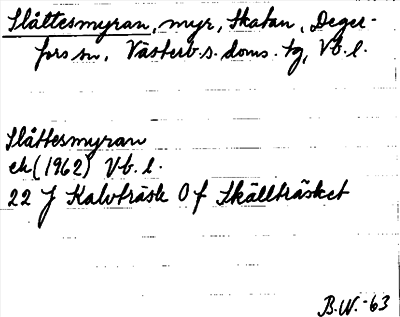 Slåttesmyran, myr, Skatan, Deger-
fors sn, Västerb. s. doms. tg, Vb. l.
Slåttesmyran
ek (1962) Vb. l.
22 J Kalvträsk 0 f Skällträsket
B.W. -63